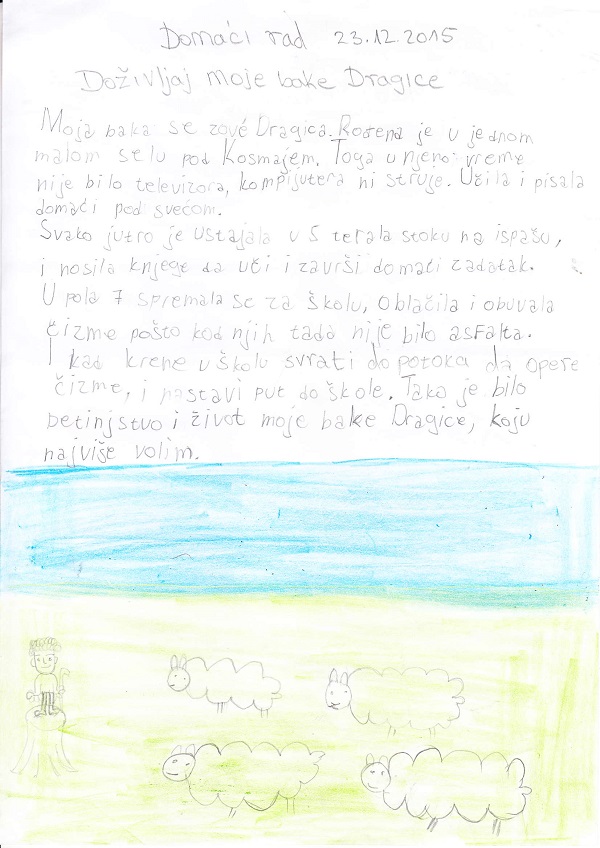 Domaći rad 23.12.2015
Doživljaj moje bake Dragice
Moja baka se zove Dragica. Rođena je u jednom
malom selu pod Kosmajem. Toga u njeno vreme
nije bilo televizora, kompijutera ni struje. Učila i pisala
domaći pod svećom.
Svako jutro je ustajala u 5 terala stoku na ispašu,
i nosila knjege da uči i završi domaći zadatak.
U pola 7 spremala se za školu, oblačila i obuvala
čizme pošto kod njih tada nije bilo asfalta.
I kad krene u školu svrati do potoka da opere
čizme, i nastavi put do škole. Tako je bilo
detinjstvo i život moje bake Dragice, koju
najviše volim.